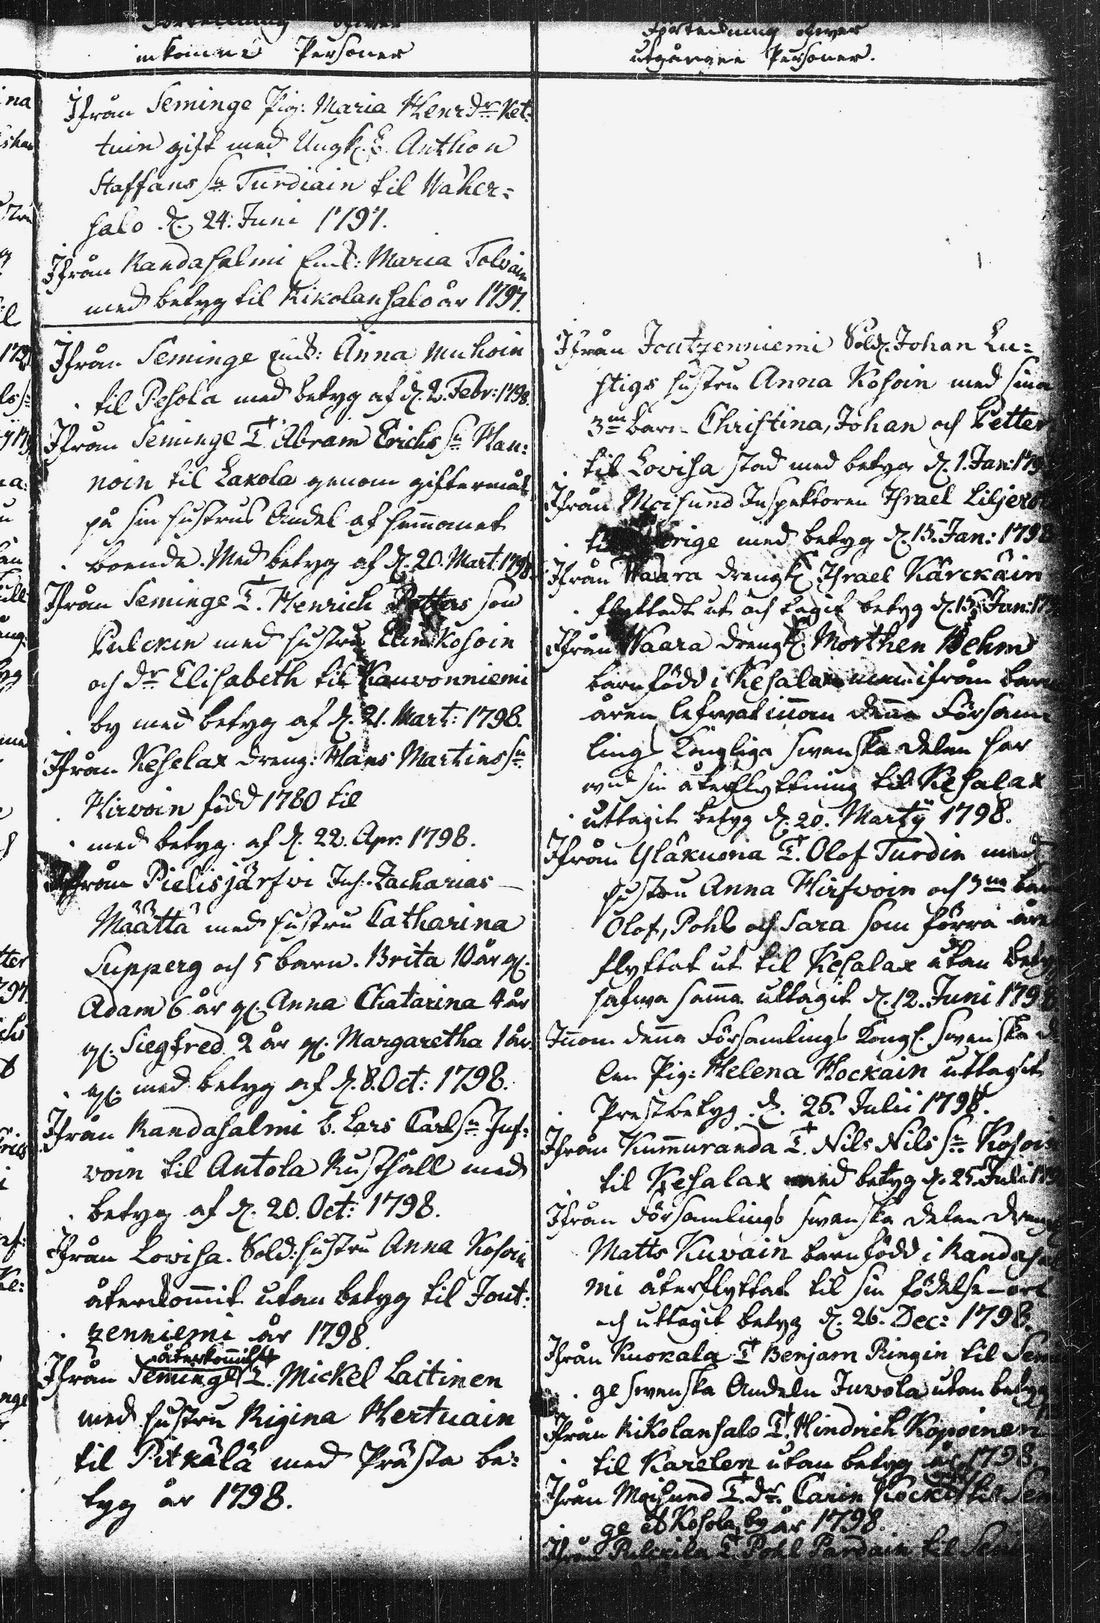 Förteckning öfwer
inkomne Personer
Ifrån Seminge Pig: Maria Henr.dr Ket-
tuin gift med Ungk. Anthon
Staffans Sn Turdiain til Waher-
salo d. 24: Juni 1797.
Ifrån Randasalmi Enk: Maria Tolvain
med betyg til Kikolansalo år 1797.
Ifrån Seminge Enk: Anna Muhoin
til Pesola med betyg af d. 2. Febr: 1798.
Ifrån Seminge T. Abram Erichs Sn Han-
noin til Lakola genom giftermål
på sin hustrus Andel af hemmanet
boende. Med betyg af d. 20. Mart. 1798.
Ifrån Seminge T. Henrich Petters son
Pulckin med hustru Elin Kosoin
och dr Elisabeth til Kauvonniemi
by med betyg af d. 21. Mart: 1798.
Ifrån Keselax Dreng: Hans Martins Sn
Hirwoin född 1780 til
med betyg af d. 22. Apr. 1798.
Ifrån Pielisjärfwi Inh: Zacharias
Määttä med hustru Catharina
Supperg och 5 barn. Brita 10 år gl.
Adam 6 år gl. Anna Chatarina 4 år
gl. Siegfred 2 år gl. Margaretha 1 år
gl. med betyg af d. 8. Oct: 1798.
Ifrån Randasalmi b. Lars Carl Sn Inf-
voin til Antola Rusthåll med
betyg af d. 20. Oct: 1798.
Ifrån Lovisa Sold: hustru Anna Kosoin
återkommit utan betyg til Jout-
zenniemi år 1798.
återkommit
Ifrån Seminge T. Mickel Laitinen
med hustru Rigina Hertuain
til Pitkälä med Prästa be-
tyg år 1798.
Förteckning öfwer
utgångne Personer.
Ifrån Joutzenniemi Sold. Johan Lu-
stigs hustru Anna Kosoin med sina
3ne barn Christina, Johan och Petter
til Lovisa stad med betyg d. 1. Jan: 179
Ifrån Moisund Inspektoren Israel Liljero
med betyg d. 15. Jan: 1798
Ifrån Waara Dreng Israel Kärckäin
flyttadt ut och tagit betyg d. 15. Jan: 17
Ifrån Waara Dreng Morthen Behm
barnfödd i Kesalax men ifrån barn
åren lefwat innom denna Församm
lings Kongliga Swenska delen har
wid sin återflyttning til Kesalax
uttagit betyg d. 20. Martÿ 1798.
Ifrån Yläkuona T. Olof Turdin med
hustru Anna Hirfwoin och 3ne bar
Olof, Pohl och Sara som förra åre
flyttat ut til Kesalax utan bety
hafwa samma uttagit d. 12. Juni 1798
Innom denna Församlings Kongl. Swenska de
len Pig: Helena Hockain uttagit
Prestbetyg d. 26. Julii 1798.
Ifrån Kummuranda T. Nils Nils Sn Kosoin
til Kesalax med betyg d. 25. Juli 179
Ifrån Församlings Swenska delen Dreng
Matts Kuvain barnfödd i Randasal
mi återflyttat til sin födelse ort
och uttagit betyg d. 26. Dec: 1798.
Ifrån Kuokala T Benjam Ringin til Semi
ge Swenska Andeln Juvola utan betyg
Ifrån Kikolansalo T. Hindrich Kopoinen
til Karelen utan betyg år 1798.
Ifrån Moisund T. dr. Carin til Sem
ge Kosola by år 1798
Ifrån T. Pohl Pardain til Sem